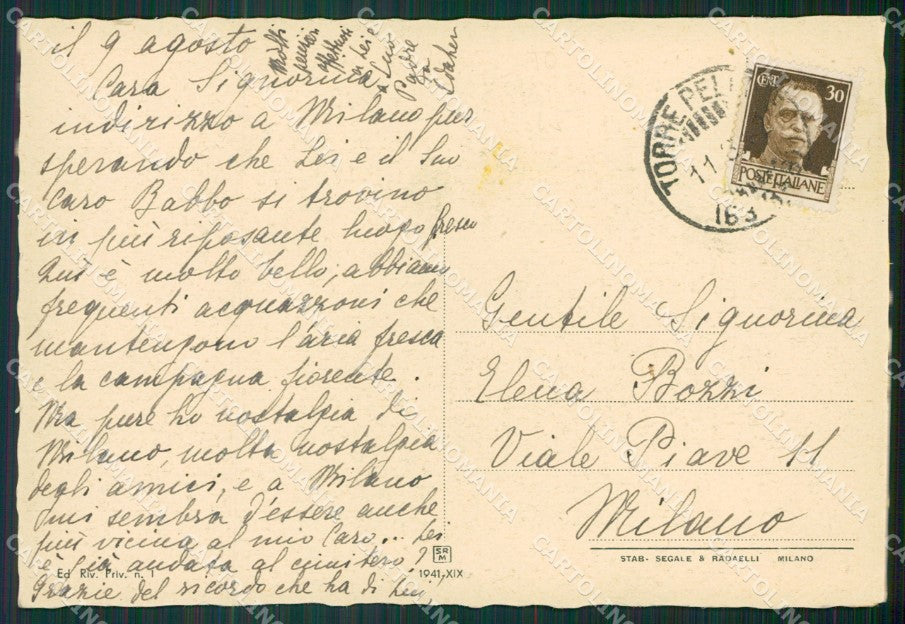 il 9 agosto
Cara Signorina,
indirizzo a Milano pur
sperando che Lei e il Suo
Caro Babbo si trovino
in più riposante luogo fresco
Qui è molto bello; abbiamo
frequenti acquazzoni che
mantengono l'aria fresca
e la campagna fiorente.
Ma pure ho nostalgia di
Milano, molta nostalgia
degli amici, e a Milano
mi sembra d'essere anche
più vicina al mio Caro... Lei
è già andata al cimitero?
Grazie del ricordo che ha di Lui,
Molti
pensieri
affettuosi
a Lei e
a Suo
Padre
da
TORRE PELLICE
11.
163
CENT. 30
POSTE ITALIANE
Gentile Signorina
Elena Bozzi
Viale Piave 11
Milano
STAB. SEGALE & RADAELLI MILANO
Ed. Riv. Priv. n. 1
SR
M
1941-XIX
CARTOLINOMANIA